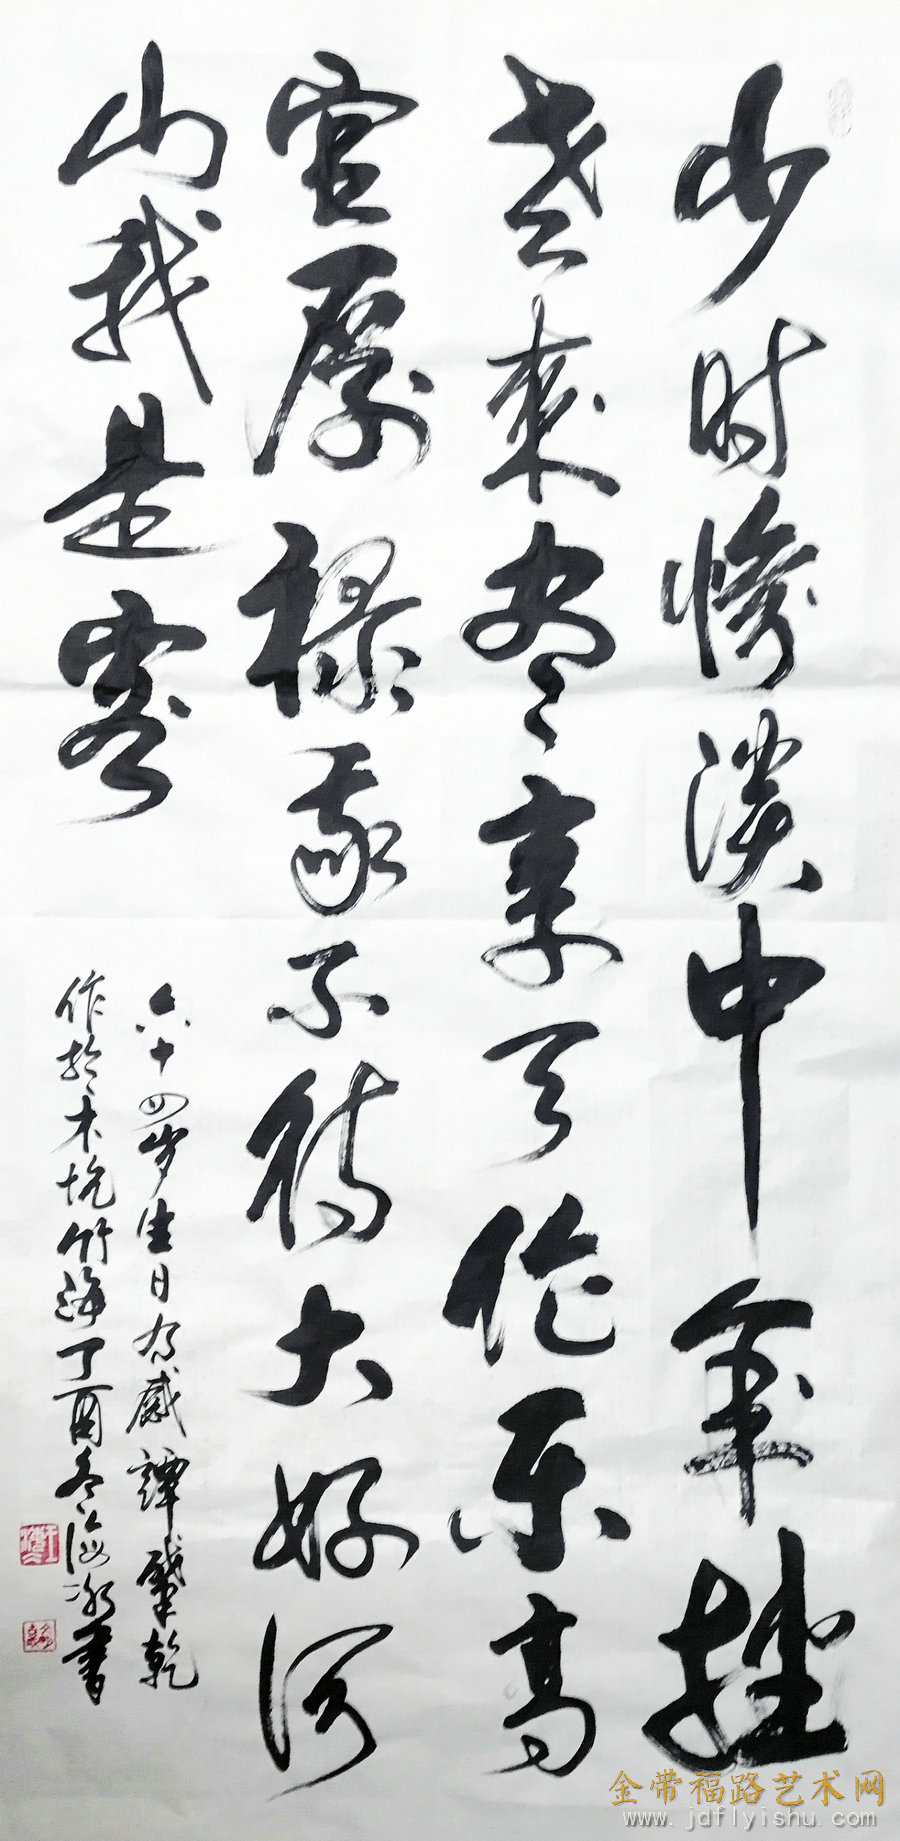 少时惨淡中年挫
老来尽享天作乐高
官厚禄我不稀大好河
山我是客
六十四岁生日有感 譚肇乾
作於木坑竹海丁酉冬海冰書
金带福路艺术网
www.jdflyishu.com